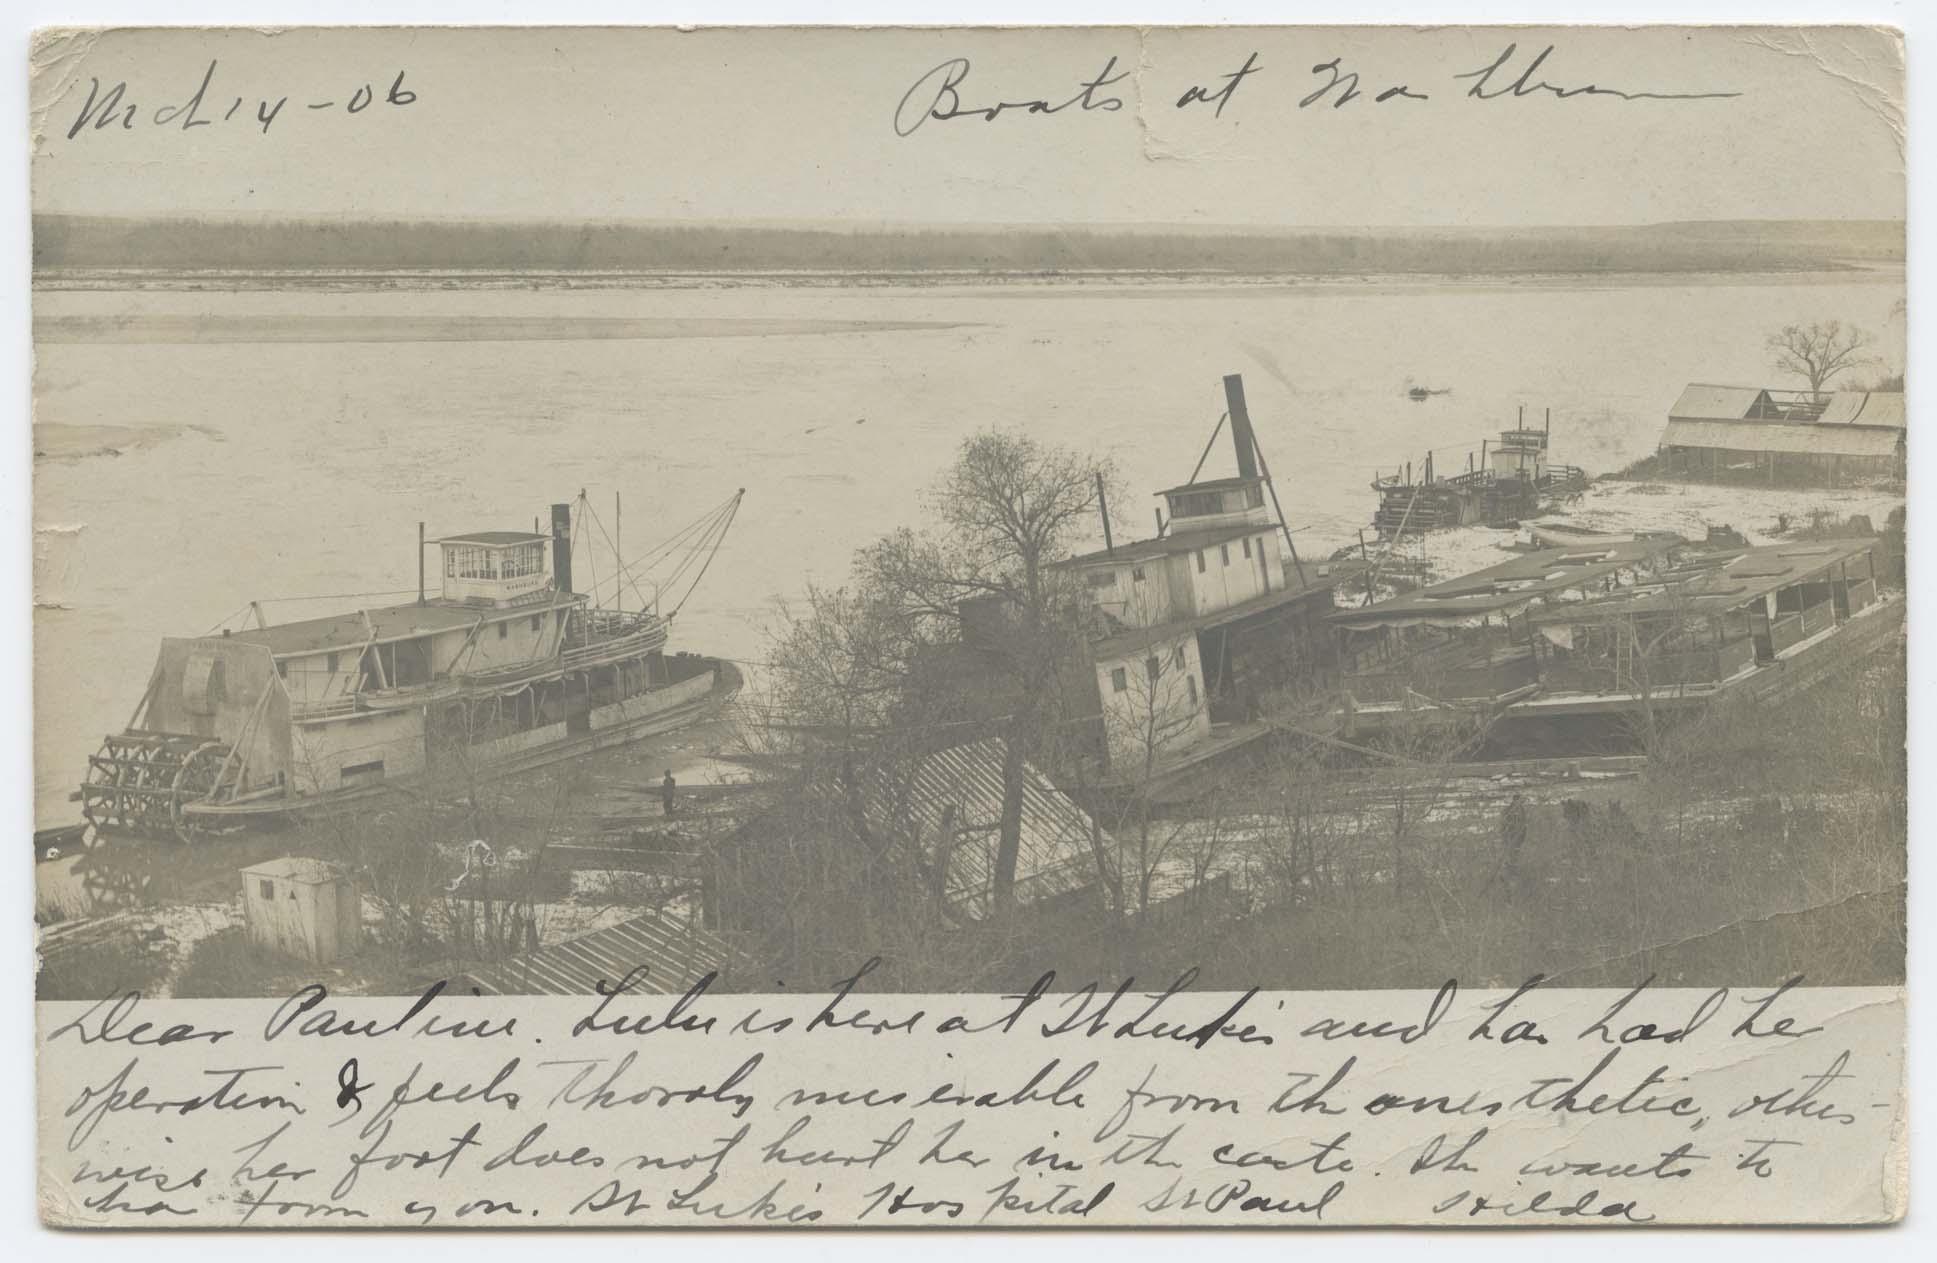 Mch 14-06
Boats at Washburn
WASHBURN
Dear Pauline. Lulu is here at St Luke's and has had her
operation & feels thoroly miserable from the anesthetic, other-
wise her foot does not hurt her in the caste. She wants to
hear from you. St Luke's Hospital St Paul Hilda